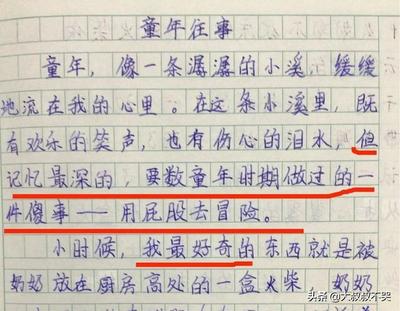 童年往事
童年，像一条潺潺的小溪，缓缓
地流在我的心里。在这条小溪里，既
有欢乐的笑声，也有伤心的泪水，但
记忆最深的，要数童年时期做过的一
件傻事——用屁股去冒险。
小时候，我最好奇的东西就是被
奶奶放在厨房高处的一盒火柴，奶奶
头条 @大叔叔不哭